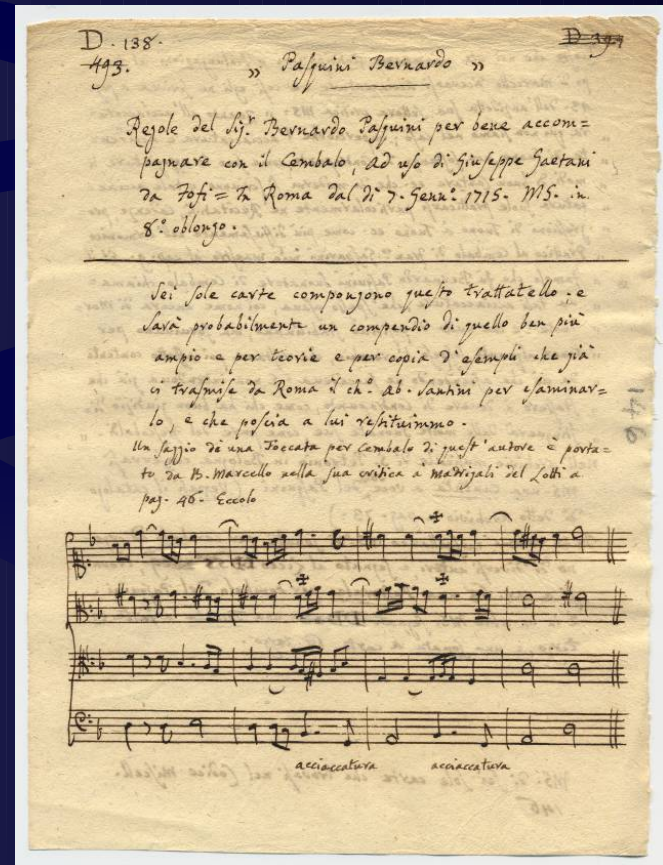 D. 138.
D 394
493.
» Pasquini Bernardo »
Regole del Sig.r Bernardo Pasquini per bene accom=
pagnare con il Cembalo, ad uso di Giuseppe Gaetani
da Fofi = In Roma dal dì 7. Genn.o 1715. MS. in
8.o oblongo.
Sei sole carte compongono questo trattatello, e
sarà probabilmente un compendio di quello ben più
ampio e per teorie e per copia d'esempli che già
ci trasmise da Roma il ch.o Ab. Santini per esaminar=
lo, e che poscia a lui restituimmo.
Un saggio de una Toccata per Cembalo di quest'autore è porta=
to da B. Marcello nella sua critica a Madrigali del Lotti a
pag. 46. Eccolo
acciaccatura acciaccatura
146